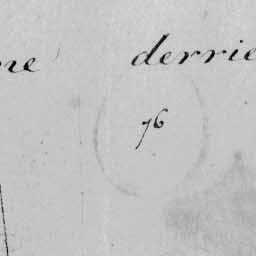 ne derrie
76